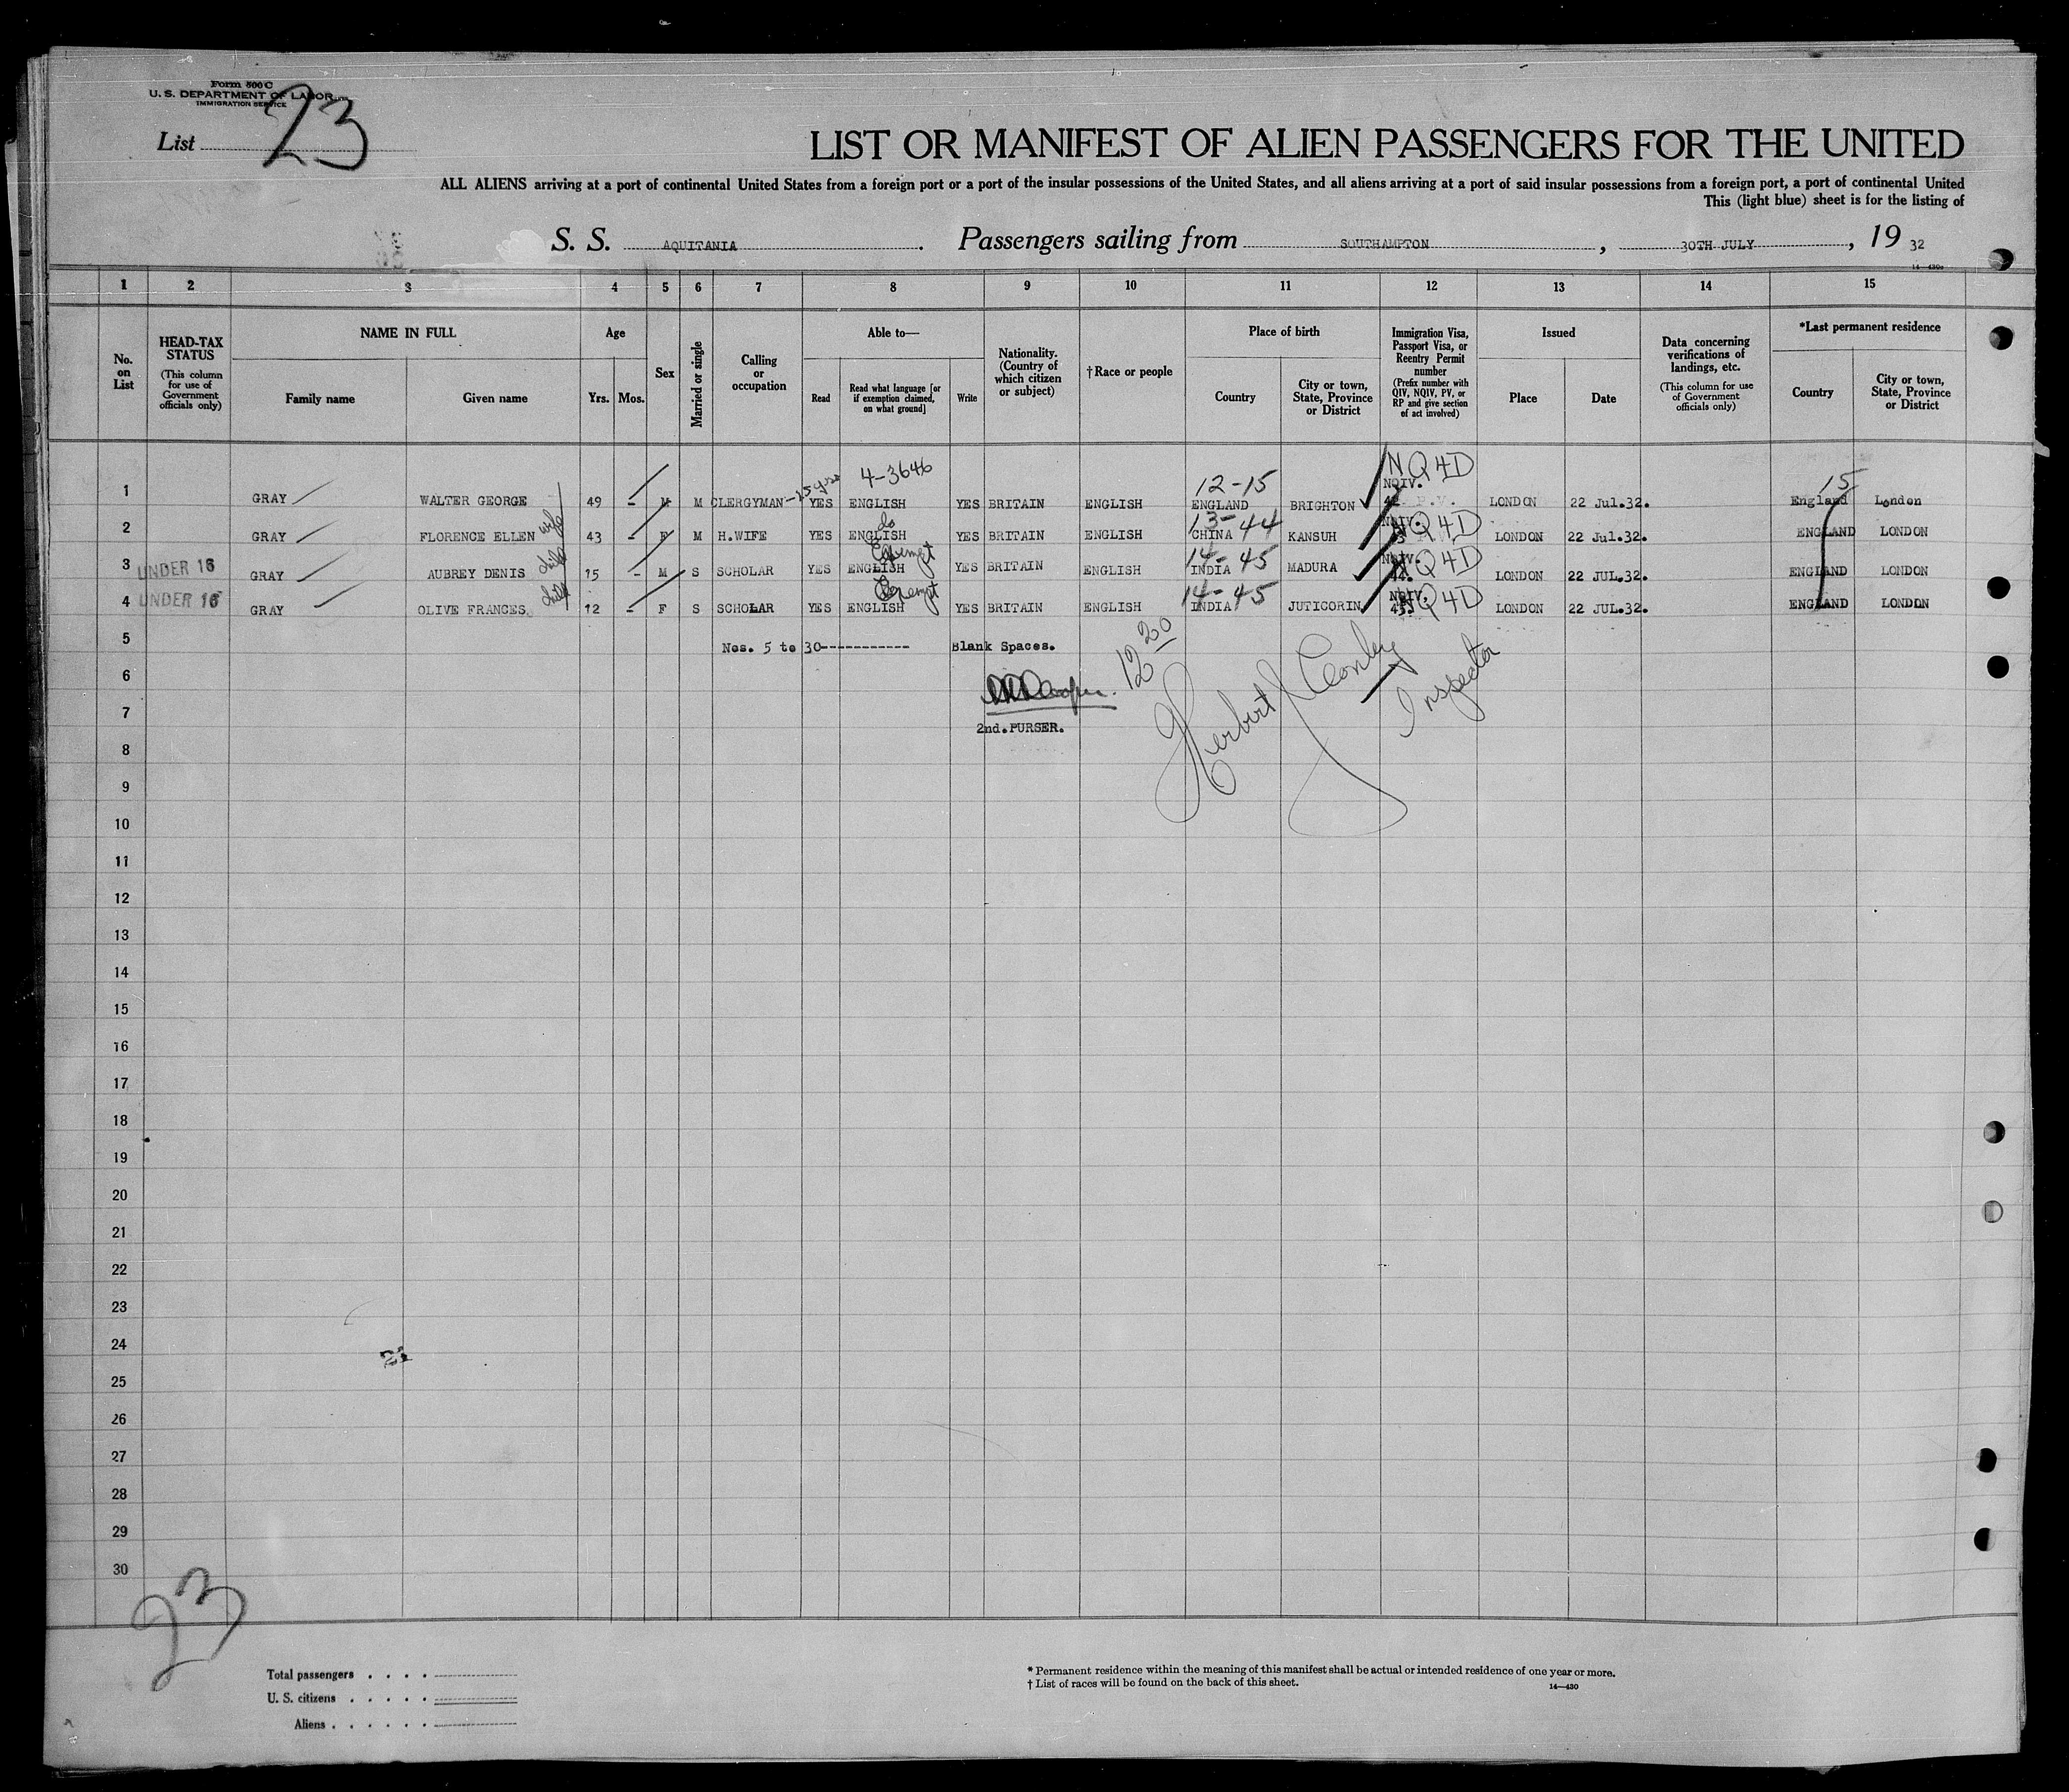 Form 500 C
U. S. DEPARTMENT OF LABOR
IMMIGRATION SERVICE
List 23
LIST OR MANIFEST OF ALIEN PASSENGERS FOR THE UNITED
ALL ALIENS arriving at a port of continental United States from a foreign port or a port of the insular possessions of the United States, and all aliens arriving at a port of said insular possessions from a foreign port, a port of continental United
This (light blue) sheet is for the listing of
S. S. AQUITANIA. Passengers sailing from SOUTHAMPTON, 30TH JULY, 19 32
1 2 3 4 5 6 7 8 9 10 11 12 13 14 15
No. on List
HEAD-TAX STATUS (This column for use of Government officials only)
NAME IN FULL
Family name
Given name
Age
Yrs. Mos.
Sex
Married or single
Calling or occupation
Able to—
Read
Read what language [or if exemption claimed, on what ground]
Write
Nationality. (Country of which citizen or subject)
†Race or people
Place of birth
Country
City or town, State, Province or District
Immigration Visa, Passport Visa, or Reentry Permit number (Prefix number with QIV, NQIV, PV, or RP and give section of act involved)
Issued
Place
Date
Data concerning verifications of landings, etc. (This column for use of Government officials only)
*Last permanent residence
Country
City or town, State, Province or District
4-3646 12-15 NQ4D 15
1 GRAY WALTER GEORGE 49 - M M CLERGYMAN -25 yrs YES ENGLISH YES BRITAIN ENGLISH ENGLAND BRIGHTON NQIV. LONDON 22 Jul.32. England London
do 13-44 Q4D
2 GRAY FLORENCE ELLEN wife 43 - F M H.WIFE YES ENGLISH YES BRITAIN ENGLISH CHINA KANSUH NQIV. LONDON 22 Jul.32. ENGLAND LONDON
Exempt 14-45 Q4D
3 UNDER 16 GRAY AUBREY DENIS child 15 - M S SCHOLAR YES ENGLISH YES BRITAIN ENGLISH INDIA MADURA NQIV. 44. LONDON 22 JUL.32. ENGLAND LONDON
Exempt 14-45 NQ4D
4 UNDER 16 GRAY OLIVE FRANCES. child 12 - F S SCHOLAR YES ENGLISH YES BRITAIN ENGLISH INDIA JUTICORIN. NQIV. 45. LONDON 22 JUL.32. ENGLAND LONDON
5 Nos. 5 to 30----------- Blank Spaces.
12 20
6
7 2nd. PURSER.
Inspector
8
9
10
11
12
13
14
15
16
17
18
19
20
21
22
23
24
25
26
27
28
29
30
23
Total passengers . . . .
U. S. citizens . . . . .
Aliens . . . . . .
* Permanent residence within the meaning of this manifest shall be actual or intended residence of one year or more.
† List of races will be found on the back of this sheet.
14—430